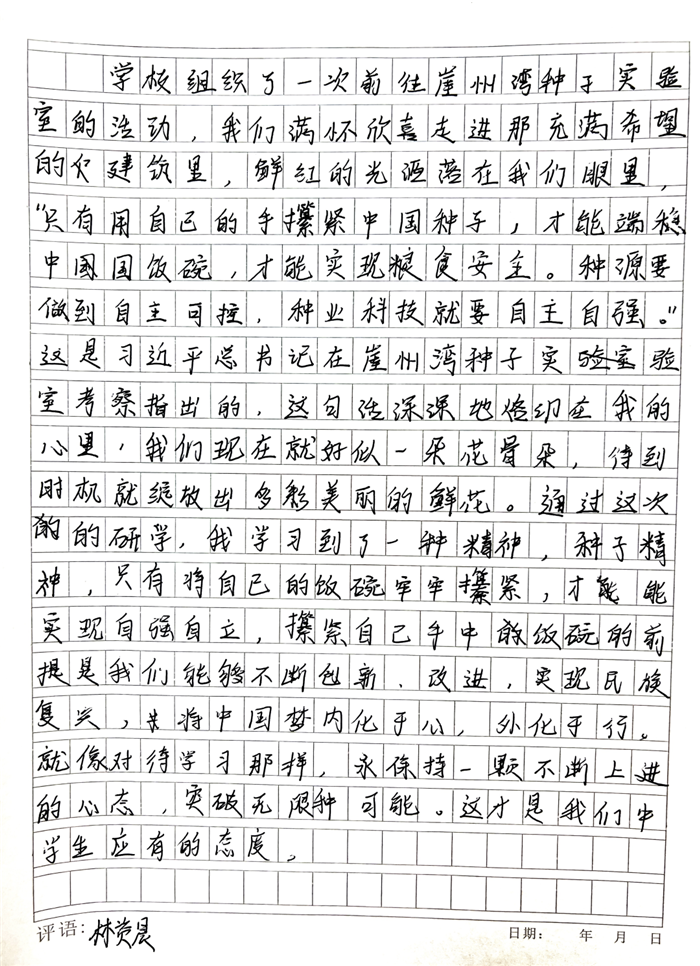 学校组织了一次前往崖州湾种子实验
室的活动，我们满怀欣喜走进那充满希望
的建筑里，鲜红的光洒落在我们眼里，
“只有用自己的手攥紧中国种子，才能端稳
中国国饭碗，才能实现粮食安全。种源要
做到自主可控，种业科技就要自主自强。”
这是习近平总书记在崖州湾种子实验室验
室考察指出的，这句话深深地烙印在我的
心里，我们现在就好似一朵花骨朵，待到
时机就绽放出多彩美丽的鲜花。通过这次
的研学，我学习到了一种精神，种子精
神，只有将自己的饭碗牢牢攥紧，才能能
实现自强自立，攥紧自己手中的饭碗的前
提是我们能够不断创新、改进，实现民族
复兴，将中国梦内化于心，外化于行。
就像对待学习那样，永保持一颗不断上进
的心态，突破无限种可能。这才是我们中
学生应有的态度。
评语：林 晨
日期： 年 月 日